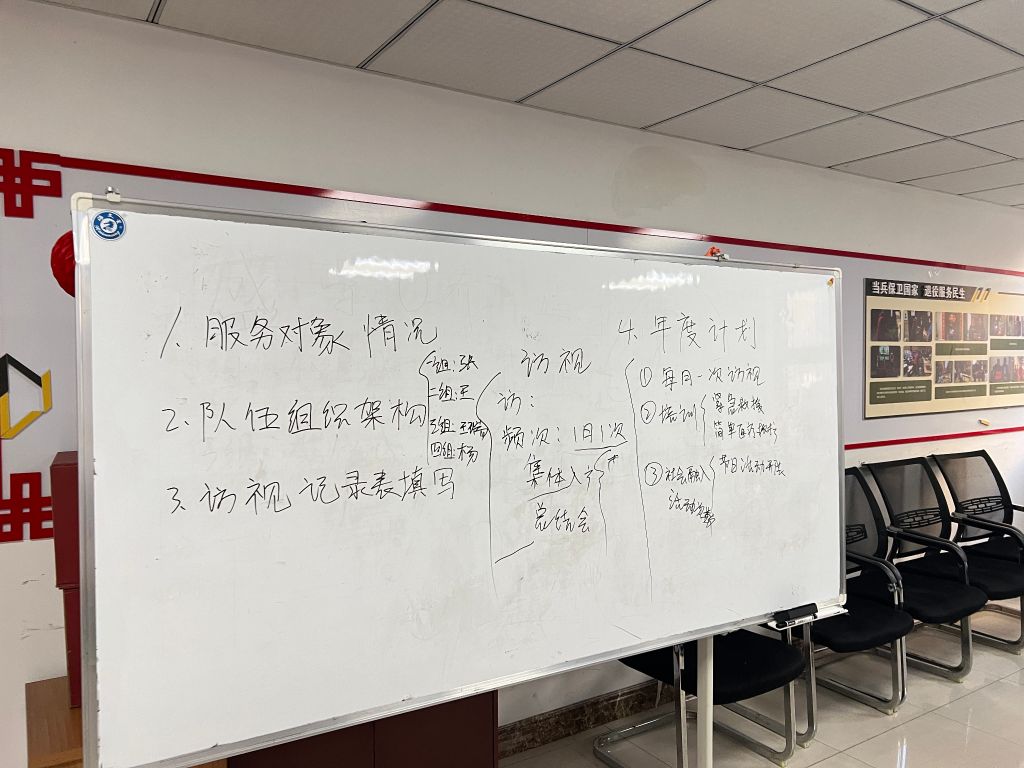 1. 服务对象 情况
2. 队伍组织架构
一组:张
二组:王
三组:王
四组:杨
3. 访视 记录表填写
访视
访:
频次:1月1次
集体入户
总结会
4. 年度计划
① 每月一次访视
② 培训
简单
③ 社会融入
活动
节日活动
当兵保卫国家 退役服务民生